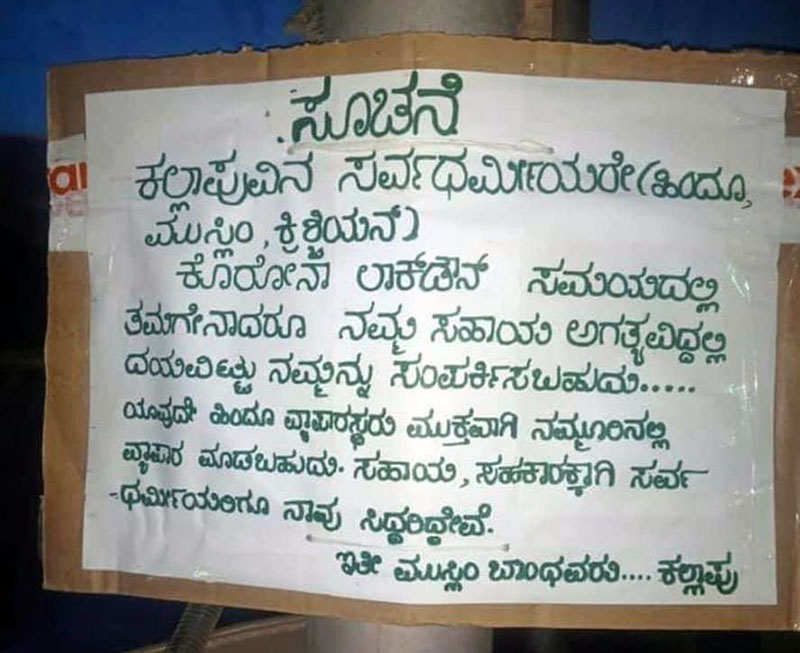 ಸೂಚನೆ
ಕಲ್ಲಾಪುವಿನ ಸರ್ವಧರ್ಮೀಯರೇ (ಹಿಂದೂ,
ಮುಸ್ಲಿಂ, ಕ್ರಿಶ್ಚಿಯನ್)
ಕೊರೋನಾ ಲಾಕ್‌ಡೌನ್ ಸಮಯದಲ್ಲಿ
ತಮಗೇನಾದರೂ ನಮ್ಮ ಸಹಾಯ ಅಗತ್ಯವಿದ್ದಲ್ಲಿ
ದಯವಿಟ್ಟು ನಮ್ಮನ್ನು ಸಂಪರ್ಕಿಸಬಹುದು.....
ಯಾವುದೇ ಹಿಂದೂ ವ್ಯಾಪಾರಸ್ಥರು ಮುಕ್ತವಾಗಿ ನಮ್ಮೂರಿನಲ್ಲಿ
ವ್ಯಾಪಾರ ಮಾಡಬಹುದು. ಸಹಾಯ, ಸಹಕಾರಕ್ಕಾಗಿ ಸರ್ವ
-ಧರ್ಮೀಯರಿಗೂ ನಾವು ಸಿದ್ಧರಿದ್ದೇವೆ.
ಇತೀ ಮುಸ್ಲಿಂ ಬಾಂಧವರು.... ಕಲ್ಲಾಪು